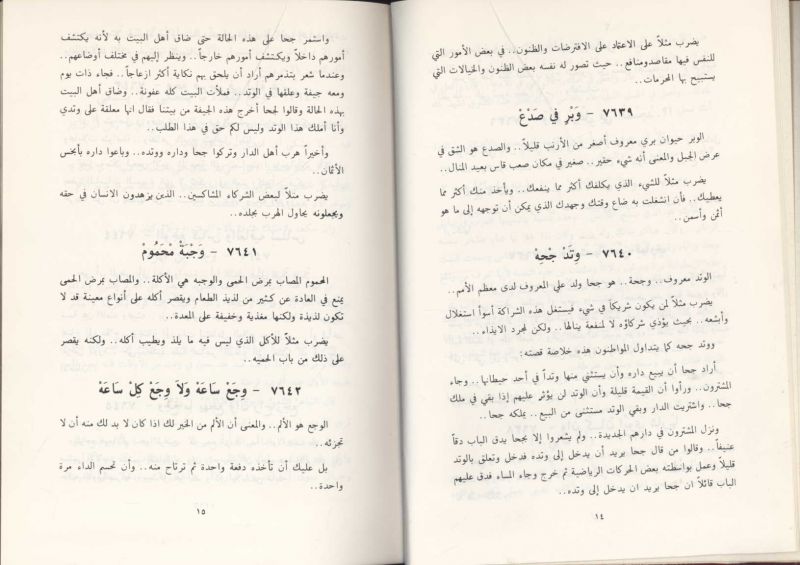 يضرب مثلاً على الاعتماد على الافترضات والظنون.. في بعض الأمور التي
للنفس فيها مقاصدومنافع.. حيث تصور له نفسه بعض الظنون والخيالات التي
يستبيح بها المحرمات..
٧٦٣٩ - وَبْرٍ في صَدْعْ
الوبر حيوان بري معروف أصغر من الأرنب قليلاً.. والصدع هو الشق في
عرض الجبل والمعنى أنه شيء حقير.. صغير في مكان صعب قاس بعيد المنال..
يضرب مثلاً للشيء الذي يكلفك أكثر مما ينفعك.. ويأخذ منك أكثر مما
يعطيك.. فأن انشغلت به ضاع وقتك وجهدك الذي يمكن أن توجهه إلى ما هو
أثمن وأسمن..
٧٦٤٠ - وِتَدْ جْحِهْ
الوتد معروف.. وجحة.. هو جحا ولد علي المعروف لدى معظم الأمم..
يضرب مثلاً لمن يكون شريكاً في شيء فيستغل هذه الشراكة أسوأ استغلال
وأبشعه.. بحيث يؤذي شركاؤه لا لمنفعة ينالها.. ولكن لمجرد الايذاء..
ووتد جحه كما يتداول المواطنون هذه خلاصة قصته:
أراد جحا أن يبيع داره وأن يستثني منها وتداً في أحد حيطانها.. وجاء
المشترون.. ورأوا أن القيمة قليلة وأن الوتد لن يؤثر عليهم إذا بقي في ملك
جحا.. واشتريت الدار وبقي الوتد مستثنى من البيع.. يملكه جحا..
ونزل المشترون في دارهم الجديدة.. ولم يشعروا إلا بجحا يدق الباب دقاً
عنيفاً.. وقالوا من قال جحا يريد أن يدخل إلى وتده فدخل وتعلق بالوتد
قليلاً وعمل بواسطته بعض الحركات الرياضية ثم خرج وجاء المساء فدق عليهم
الباب قائلاً ان جحا يريد ان يدخل إلى وتده..
١٤
واستمر جحا على هذه الحالة حتى ضاق أهل البيت به لأنه يكتشف
أمورهم داخلاً ويكتشف أمورهم خارجاً.. وينظر إليهم في مختلف أوضاعهم..
وعندما شعر بتذمرهم أراد أن يلحق بهم نكاية أكثر ازعاجاً.. فجاء ذات يوم
ومعه جيفة وعلقها في الوتد.. فملأت البيت كله عفونة.. وضاق أهل البيت
بهذه الحالة وقالوا لجحا أخرج هذه الجيفة من بيتنا فقال انها معلقة على وتدي
وأنا أملك هذا الوتد وليس لكم حق في هذا الطلب..
وأخيراً هرب أهل الدار وتركوا جحا وداره ووتده.. وباعوا داره بأبخس
الأثمان..
يضرب مثلاً لبعض الشركاء المشاكسين.. الذين يزهدون الانسان في حقه
ويجعلونه يحاول الهرب بجلده..
٧٦٤١ - وَجْبَةْ مَحْمُومْ
المحموم المصاب بمرض الحمى والوجبه هي الأكلة.. والمصاب بمرض الحمى
يمنع في العادة عن كثير من لذيذ الطعام ويقصر أكله على أنواع معينة قد لا
تكون لذيذة ولكنها مغذية وخفيفة على المعدة..
يضرب مثلاً للأكل الذي ليس فيه ما يلذ ويطيب أكله.. ولكنه يقصر
على ذلك من باب الحميه..
٧٦٤٢ - وجَعْ سَاعَهْ وَلاَ وجَعْ كِلْ سَاعَهْ
الوجع هو الألم.. والمعنى أن الألم من الخير لك اذا كان لا بد لك منه أن لا
تجزئه..
بل عليك أن تأخذه دفعة واحدة ثم ترتاح منه.. وأن تحسم الداء مرة
واحدة..
١٥